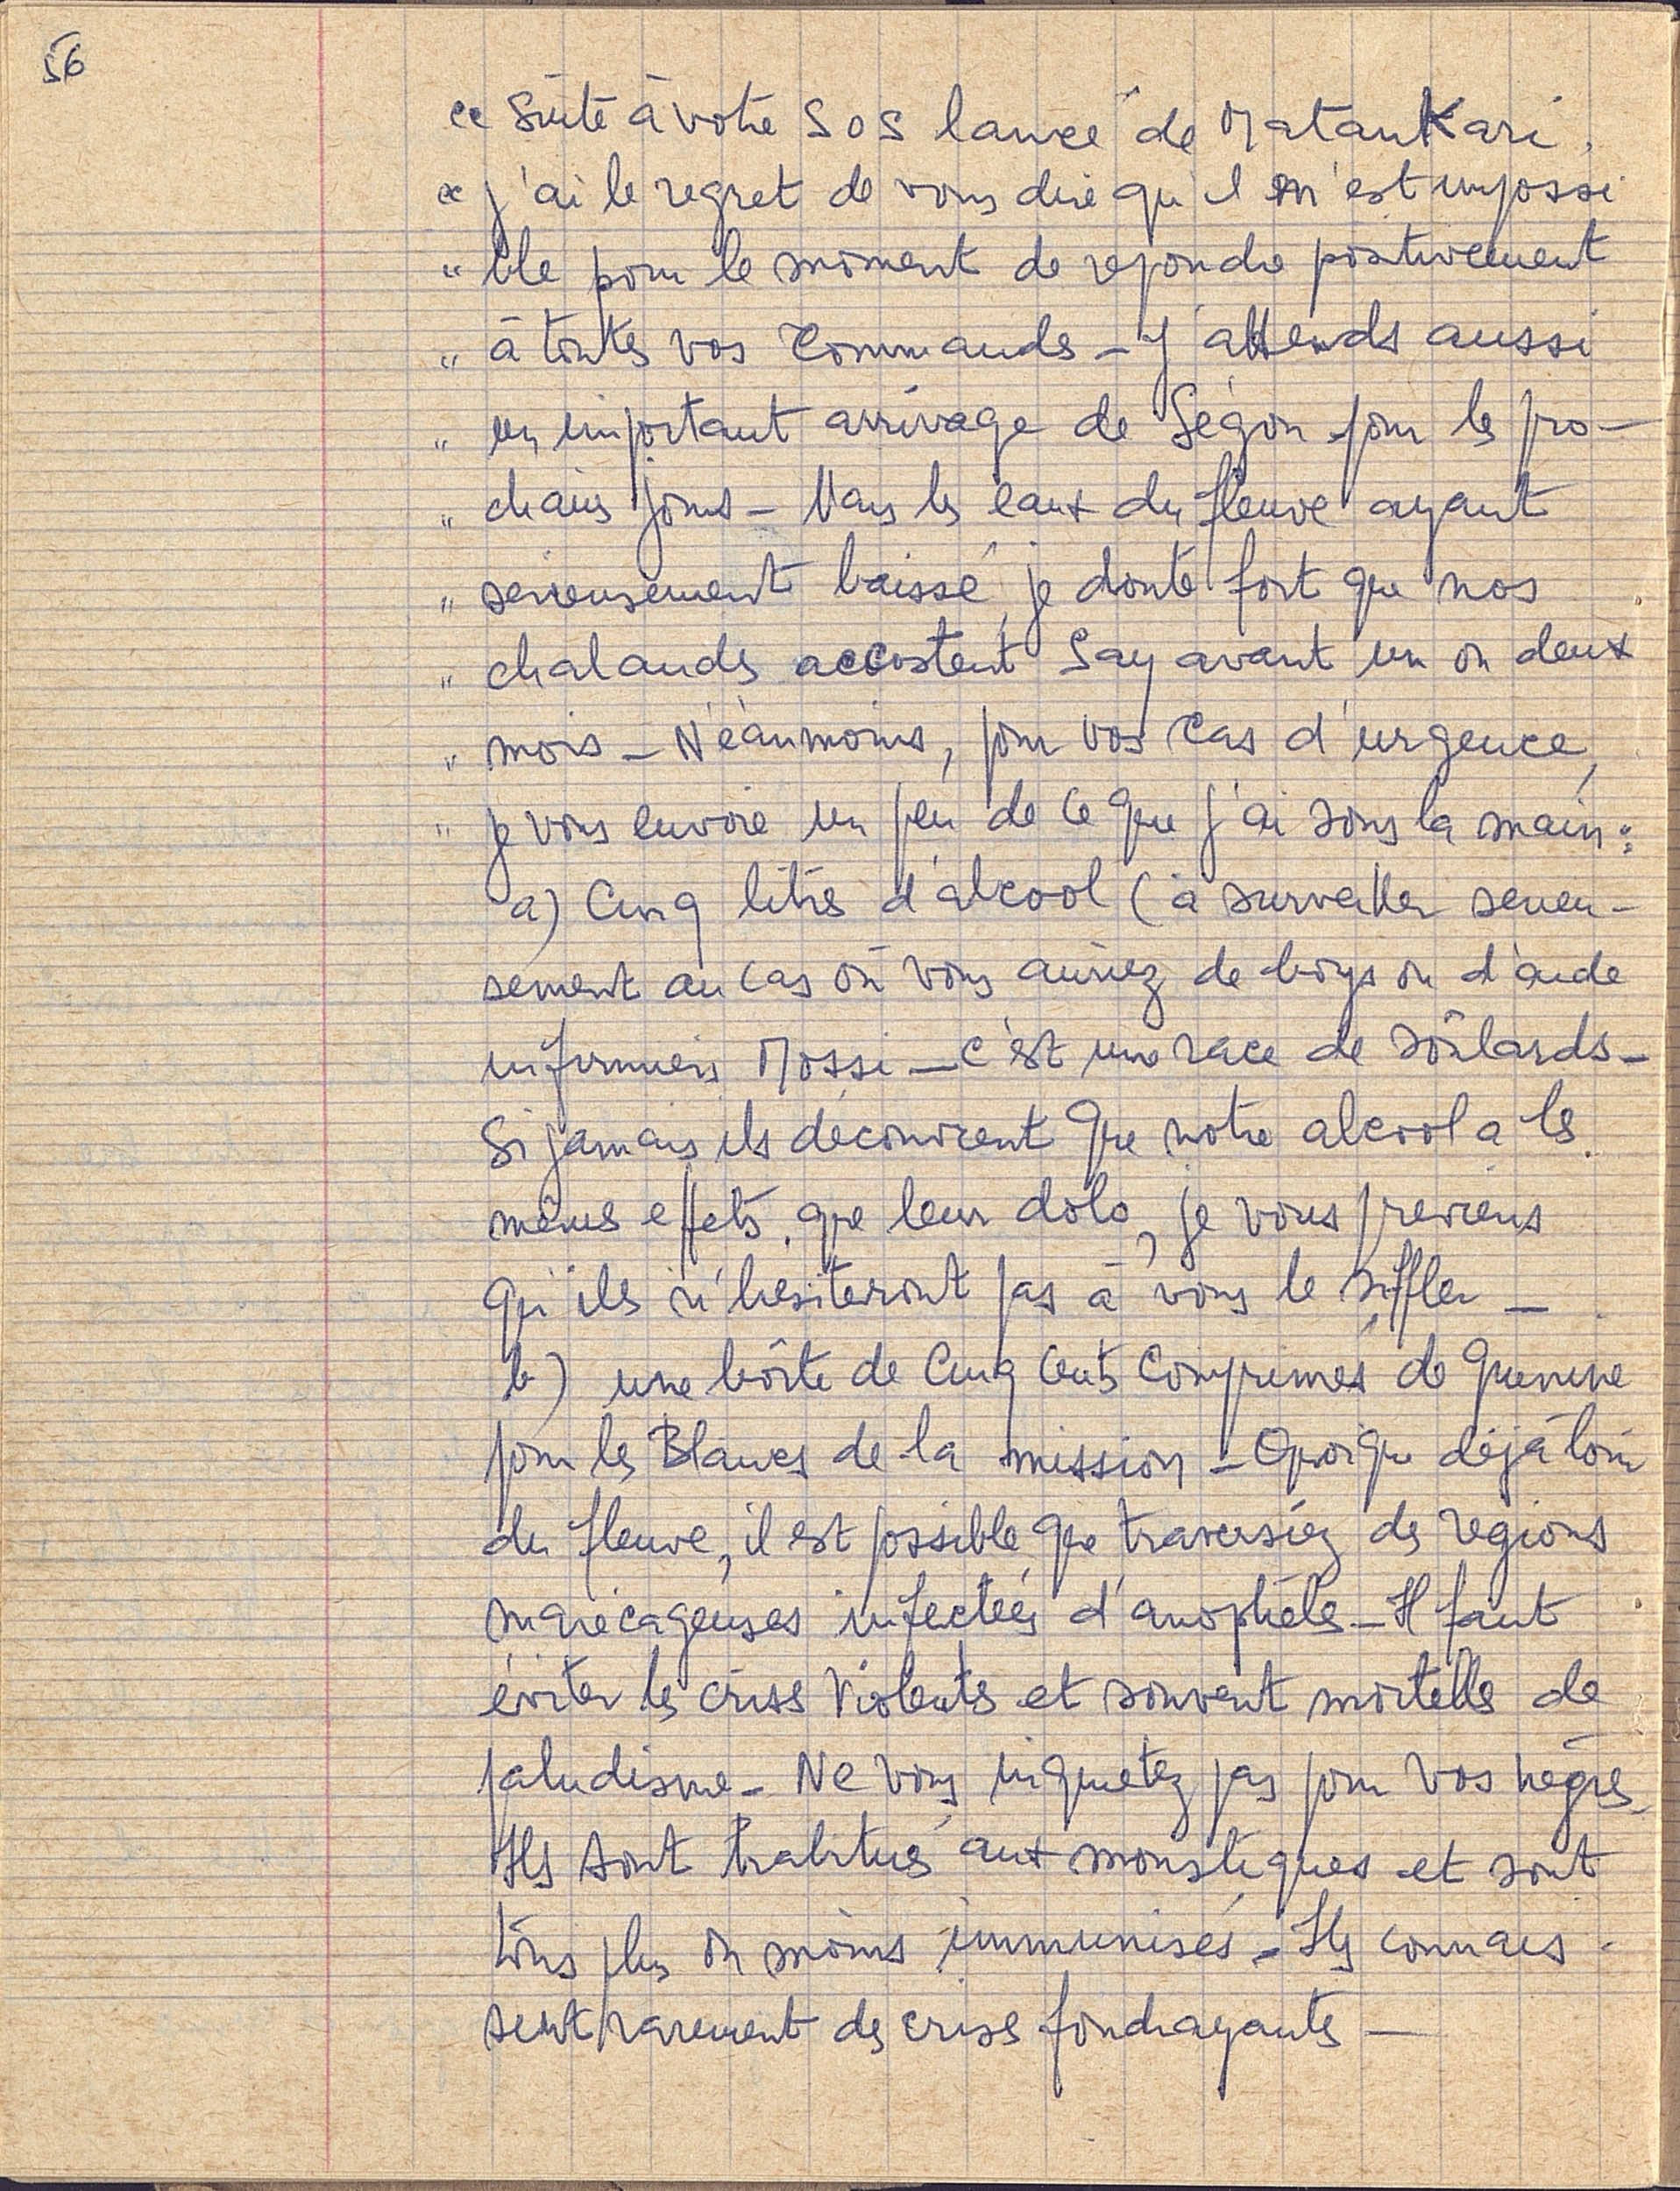 56
« Suite à votre SOS lancé de MatanKari,
« j'ai le regret de vous dire qu'il m'est impossi
" ble pour le moment de repondre positivement
" à toutes vos Commandes - J'attends aussi
" un important arrivage de Ségou pour les pro-
" chains jours - Mais les eaux du fleuve ayant
" serieusement baissé, je doute fort que nos
" chalands accostent Say avant un ou deux
" mois - Néanmoins, pour vos cas d'urgence,
" je vous envoie un peu de ce que j'ai sous la main :
a) Cinq litres d'alcool (à surveiller serieu-
sement au cas où vous auriez de boys ou d'aide
infirmiers Mossi - c'est une race de soûlards -
Si jamais ils découvrent que notre alcool a les
mêmes effets que leur dolo, je vous previens
qu'ils n'hesiteront pas à vous le siffler -
b) une boîte de Cinq Cents Comprimés de quinine
pour les Blancs de la mission - Quoique déjà loin
du fleuve, il est possible que traversiez des régions
marécageuses infectées d'anophèles - Il faut
éviter les crises violentes et souvent mortelles de
paludisme - Ne vous inquietez pas pour vos nègres
Ils sont habitués aux moustiques et sont
tous plus ou moins immunisés - Ils connais-
sent rarement des crises foudroyantes -